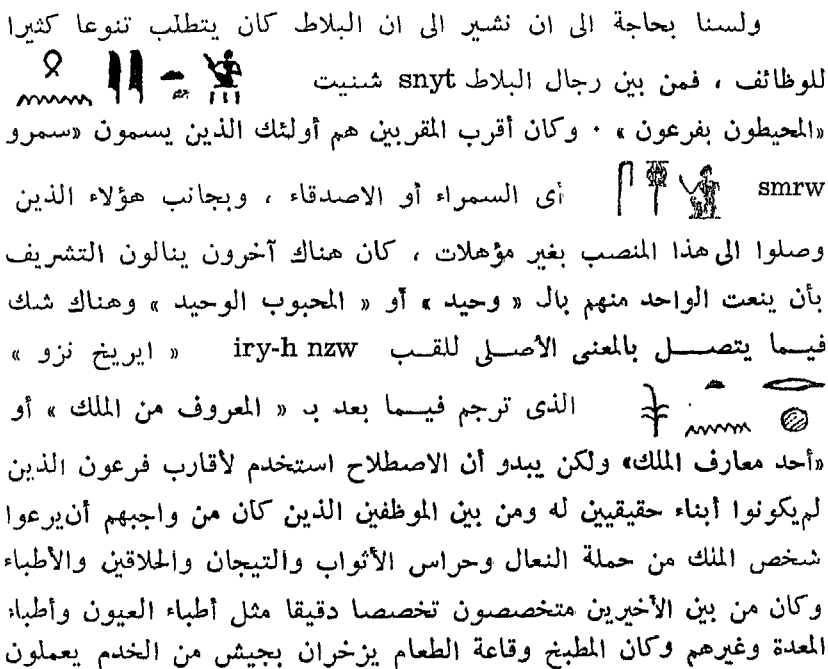 ولسنا بحاجة الى ان نشير الى ان البلاط كان يتطلب تنوعا كثيرا
للوظائف ، فمن بين رجال البلاط snyt شنيت
«المحيطون بفرعون » ٠ وكان أقرب المقربين هم أولئك الذين يسمون «سمرو
smrw أى السمراء أو الاصدقاء ، وبجانب هؤلاء الذين
وصلوا الى هذا المنصب بغير مؤهلات ، كان هناك آخرون ينالون التشريف
بأن ينعت الواحد منهم بال « وحيد » أو « المحبوب الوحيد » وهناك شك
فيما يتصل بالمعنى الأصلى للقب iry-h nzw « ايريخ نزو »
الذى ترجم فيما بعد بـ « المعروف من الملك » أو
«أحد معارف الملك» ولكن يبدو أن الاصطلاح استخدم لأقارب فرعون الذين
لم يكونوا أبناء حقيقيين له ومن بين الموظفين الذين كان من واجبهم أن يرعوا
شخص الملك من حملة النعال وحراس الأثواب والتيجان والحلاقين والأطباء
وكان من بين الأخيرين متخصصون تخصصا دقيقا مثل أطباء العيون وأطباء
المعدة وغيرهم وكان المطبخ وقاعة الطعام يزخران بجيش من الخدم يعملون